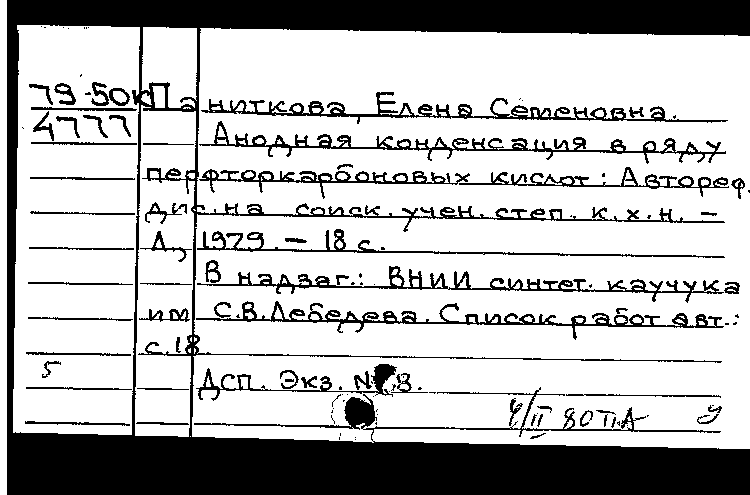 79-50к Паниткова, Елена Семеновна.
4777 Анодная конденсация в ряду
перфторкарбоновых кислот: Автореф.
дис. на соиск. учен. степ. к.х.н. –
Л., 1979. – 18 с.
В надзаг.: ВНИИ синтет. каучука
им С.В.Лебедева. Список работ авт.:
с.18.
5
ДСП. Экз. №
4/II 80